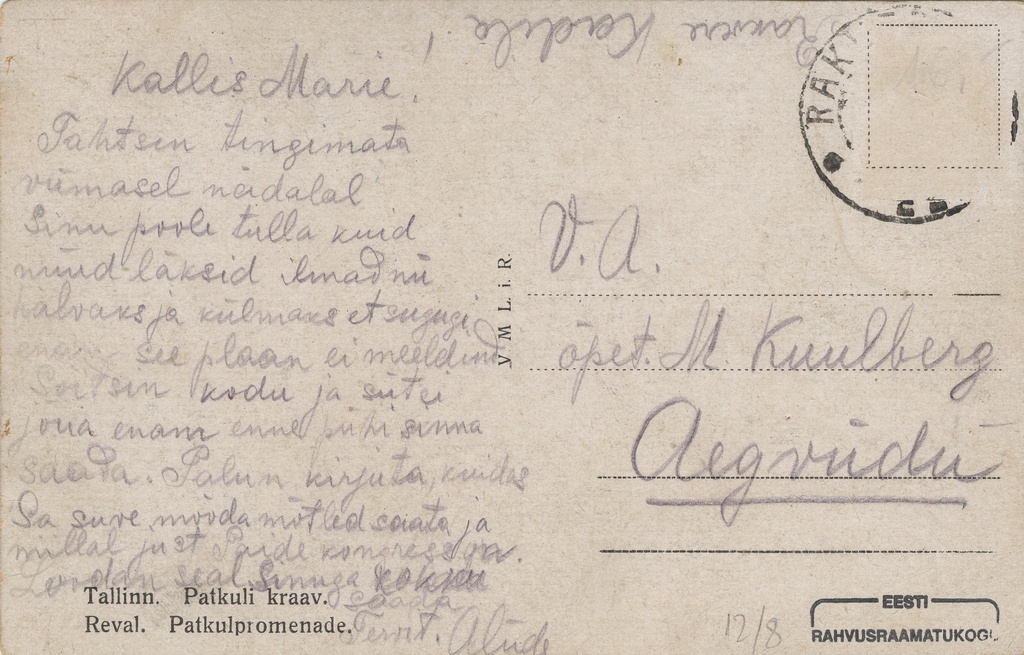 Rakvere Kadila
Kallis Marie!
Tahtsin tingimata
viimasel nädalal
Sinu poole tulla kuid
nüüd läksid ilmad nii
halvaks ja külmaks et sugugi
enam see plaan ei meeldinud
Sõitsin kodu ja siit ei
jõua enam enne pühi sinna
saada. Palun kirjuta, kuidas
Sa suve mööda mõtled saata ja
millal just Paide kongress on.
Loodan seal Sinuga kokku
saada
Tervit.
Tallinn. Patkuli kraav.
Reval. Patkulpromenade.
V M L i. R.
RAKV
V. A.
õpet. M. Kuulberg
Aegviidu
12/8
EESTI
RAHVUSRAAMATUKOGU